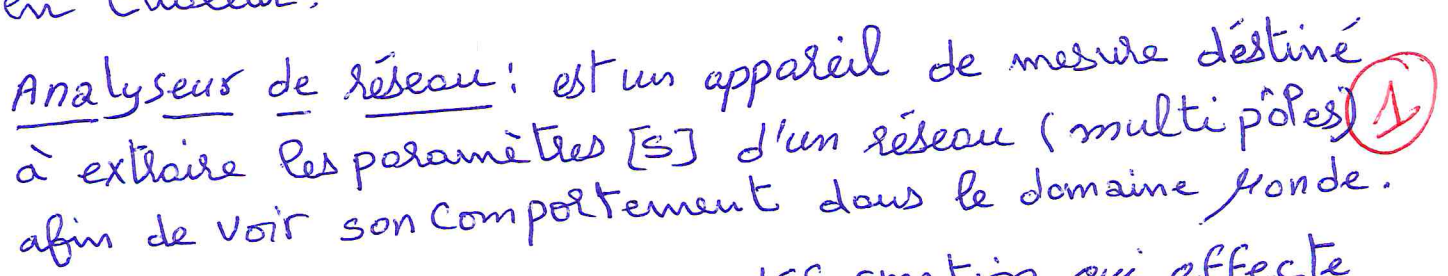 en
Analyseur de réseau : est un appareil de mesure déstiné
à extraire les paramètres [S] d'un réseau (multipôles) 1
afin de voir son comportement dans le domaine µonde.
qui effecte